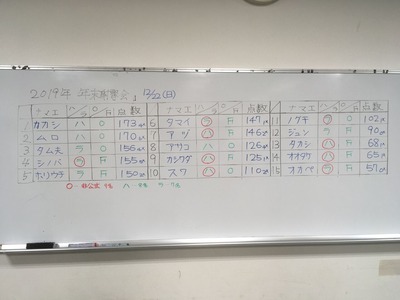 2019年 年末謝恩会 」 12/22(日)
ナマエ ハ/ラ O/F 点数 ナマエ ハ/ラ O/F 点数 ナマエ ハ/ラ O/F 点数
1 カカシ ハ O 173点 6 タマイ ハ F 147点 11 ノグチ ラ O 102点
2 ムロ ハ O 170点 7 アツ ハ F 146点 12 ジュン ラ F 90点
3 タム夫 ラ O 156点 8 アサコ ハ O 126点 13 タカシ ハ F 68点
4 シノバ ラ F 155点 9 カシワダ ハ F 125点 14 オオタケ ハ F 65点
5 ホリウチ ラ F 150点 10 スワ ハ O 110点 15 オカベ ラ F 57点
○‥非公式 ハ‥ ラ‥